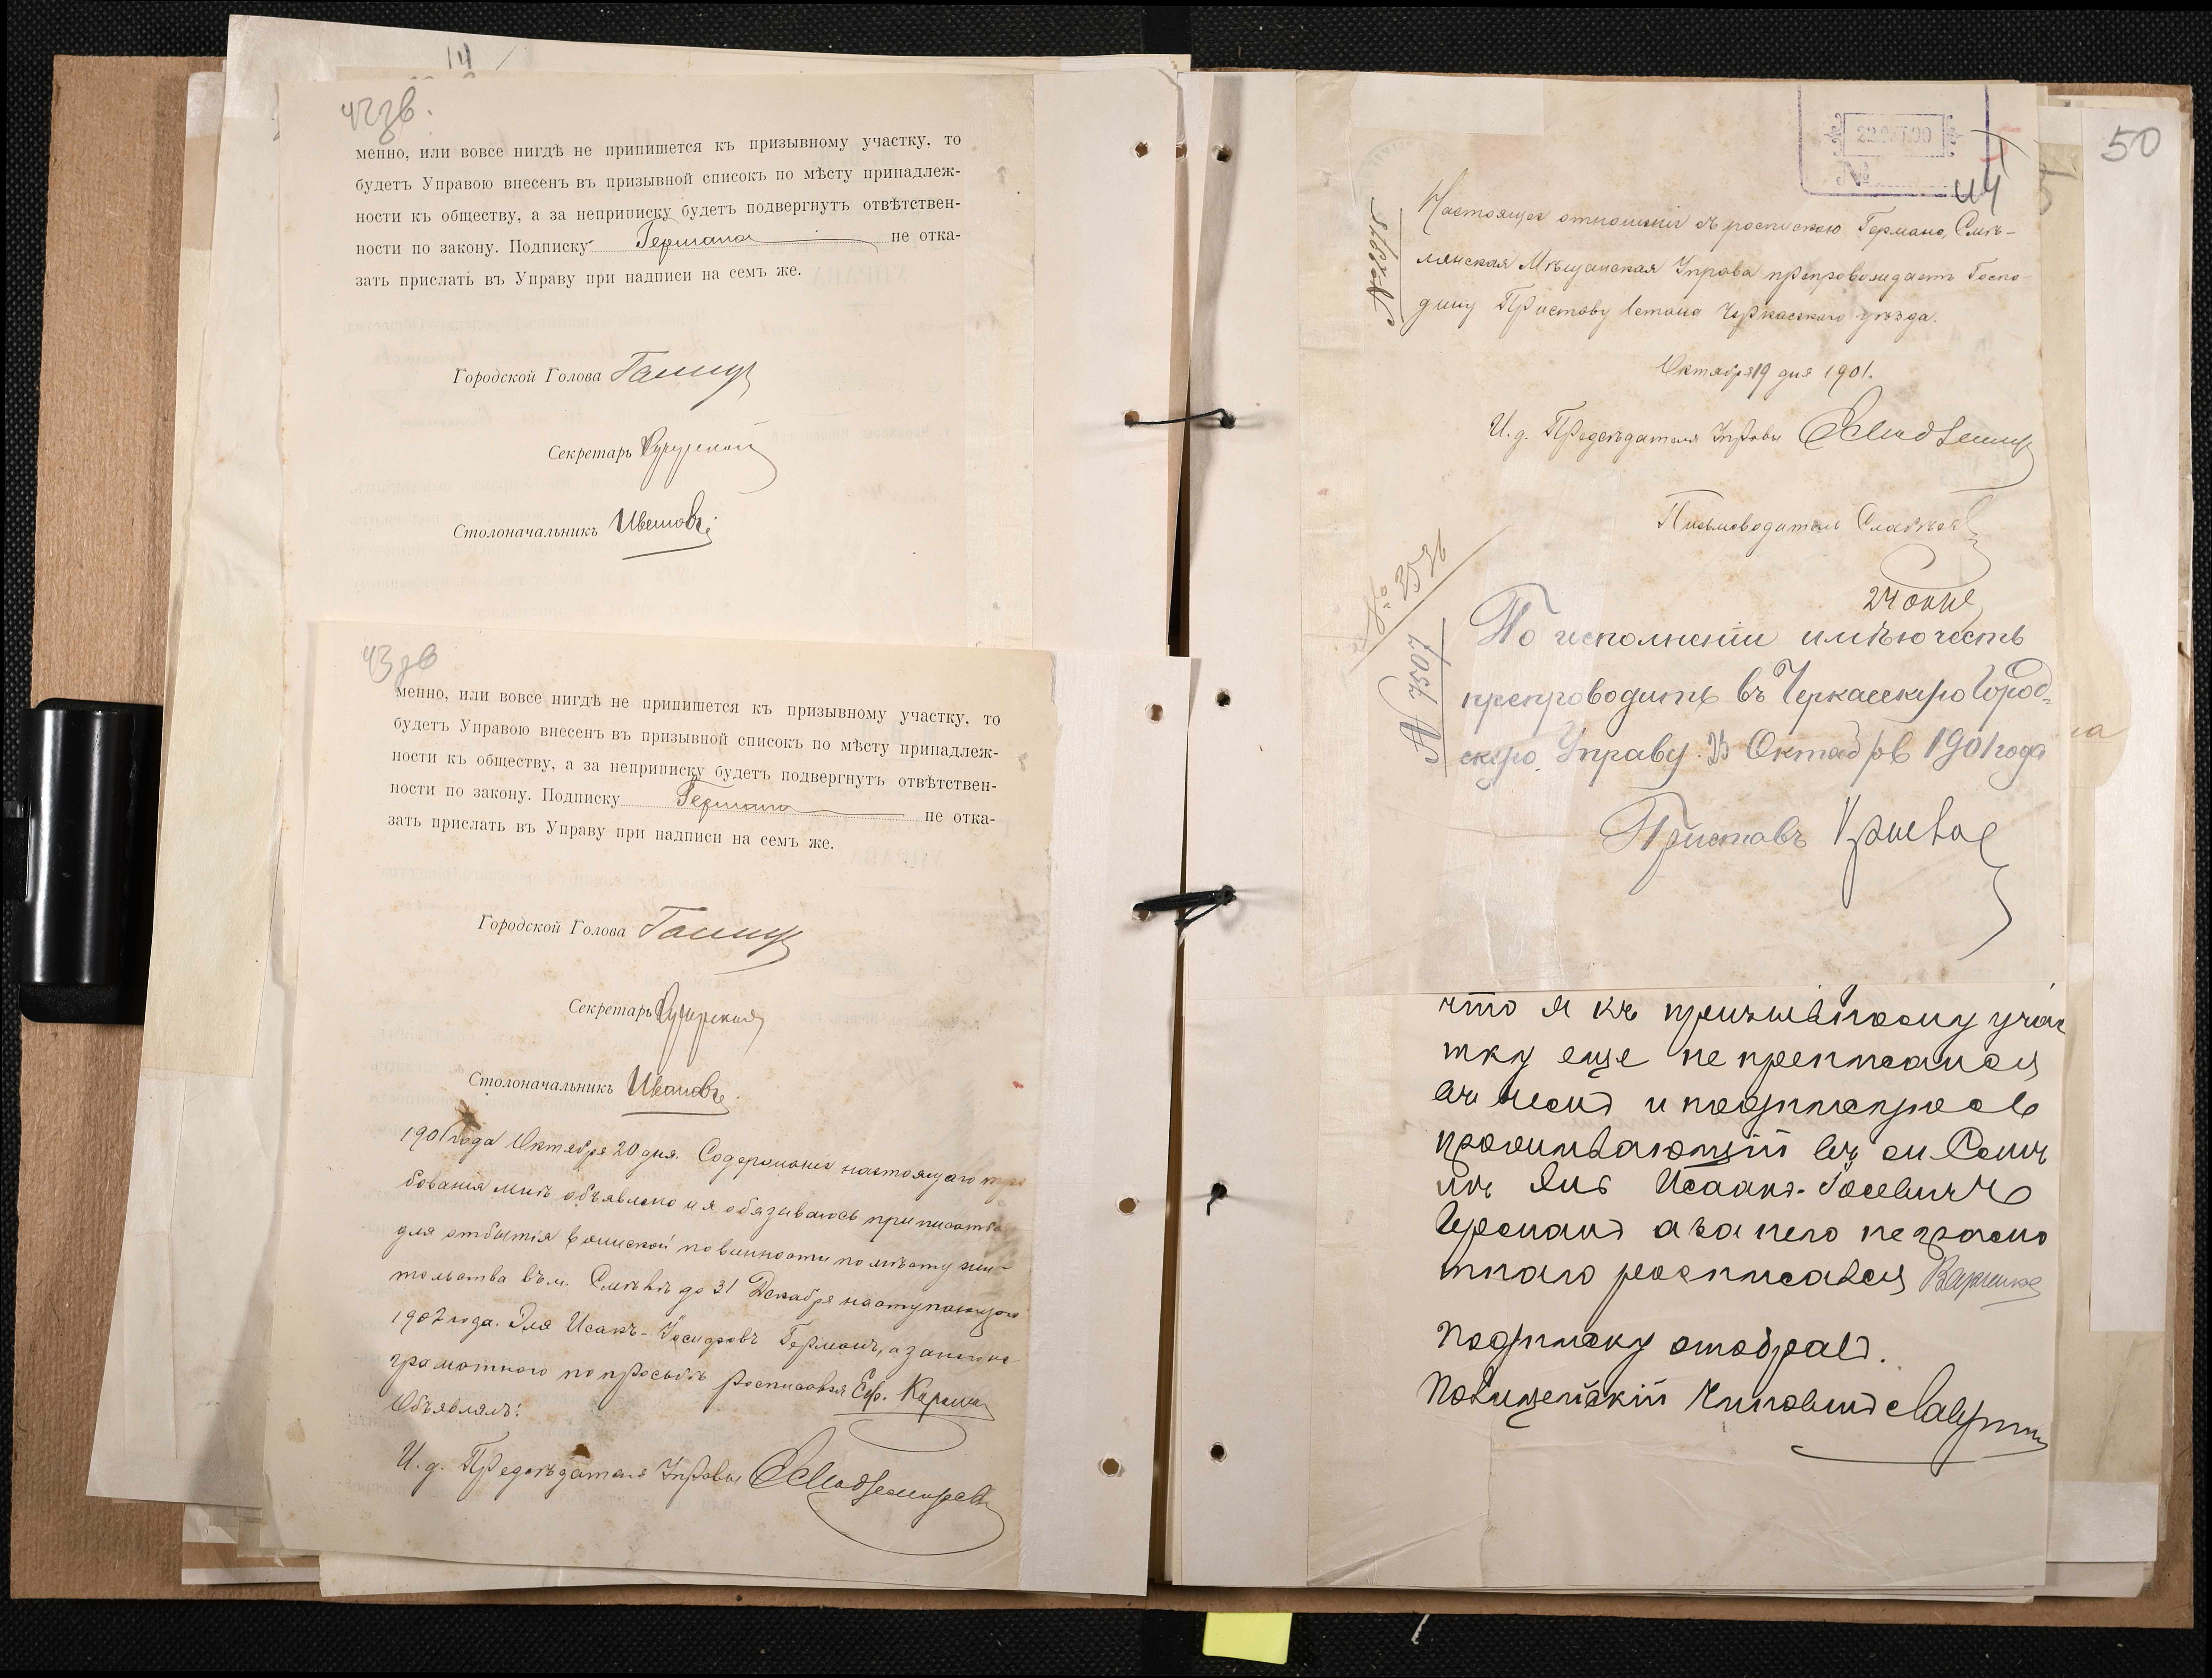 42 зв.
менно, или вовсе нигдѣ не припишется къ призывному участку, то
будетъ Управою внесенъ въ призывной списокъ по мѣсту принадлеж-
ности къ обществу, а за неприписку будетъ подвергнутъ отвѣтствен-
ности по закону. Подписку Германа не отка-
зать прислать въ Управу при надписи на семъ же.
Городской Голова
Секретарь
Столоначальникъ Ивановъ
43 зв
менно, или вовсе нигдѣ не припишется къ призывному участку, то
будетъ Управою внесенъ въ призывной списокъ по мѣсту принадлеж-
ности къ обществу, а за неприписку будетъ подвергнутъ отвѣтствен-
ности по закону. Подписку Германа не отка-
зать прислать въ Управу при надписи на семъ же.
Городской Голова
Секретарь
Столоначальникъ Ивановъ
1901 года Октября 20 дня. Содержаніе настоящаго тре
бованія мнѣ объявлено и я обязываюсь приписаться
для отбытія воинской повинности по мѣсту жи-
тельства въ м. Смѣлѣ до 31 Декабря наступающаго
1902 года. Эля Исакъ- Германъ, а за него не-
грамотнаго по просьбѣ росписался
Объявлялъ:
И. д. Предсѣдателя Управы
50
№
44
Настоящее отношеніе съ роспискою Германа, Смѣ-
лянская Мѣщанская Управа препровождаетъ Госпо-
дину Приставу 1 стана Черкасскаго уѣзда.
Октября 19 дня 1901.
И. д. Предсѣдателя Управы
Письмоводитель
№ 2536
24 окт
По исполненіи имѣю честь
препроводить въ Черкасскую Город-
скую Управу. 23 Октября 1901 года
№ 7507
Приставъ
что я къ призывному учас
тку еще не преписался
въ чемъ и подписуюсь
проживающій въ м. Смѣ
лѣ Эля Исаакъ-
Германъ а за него неграмо
тнаго росписался
Подписку отобралъ.
Полицейскій Чиновникъ